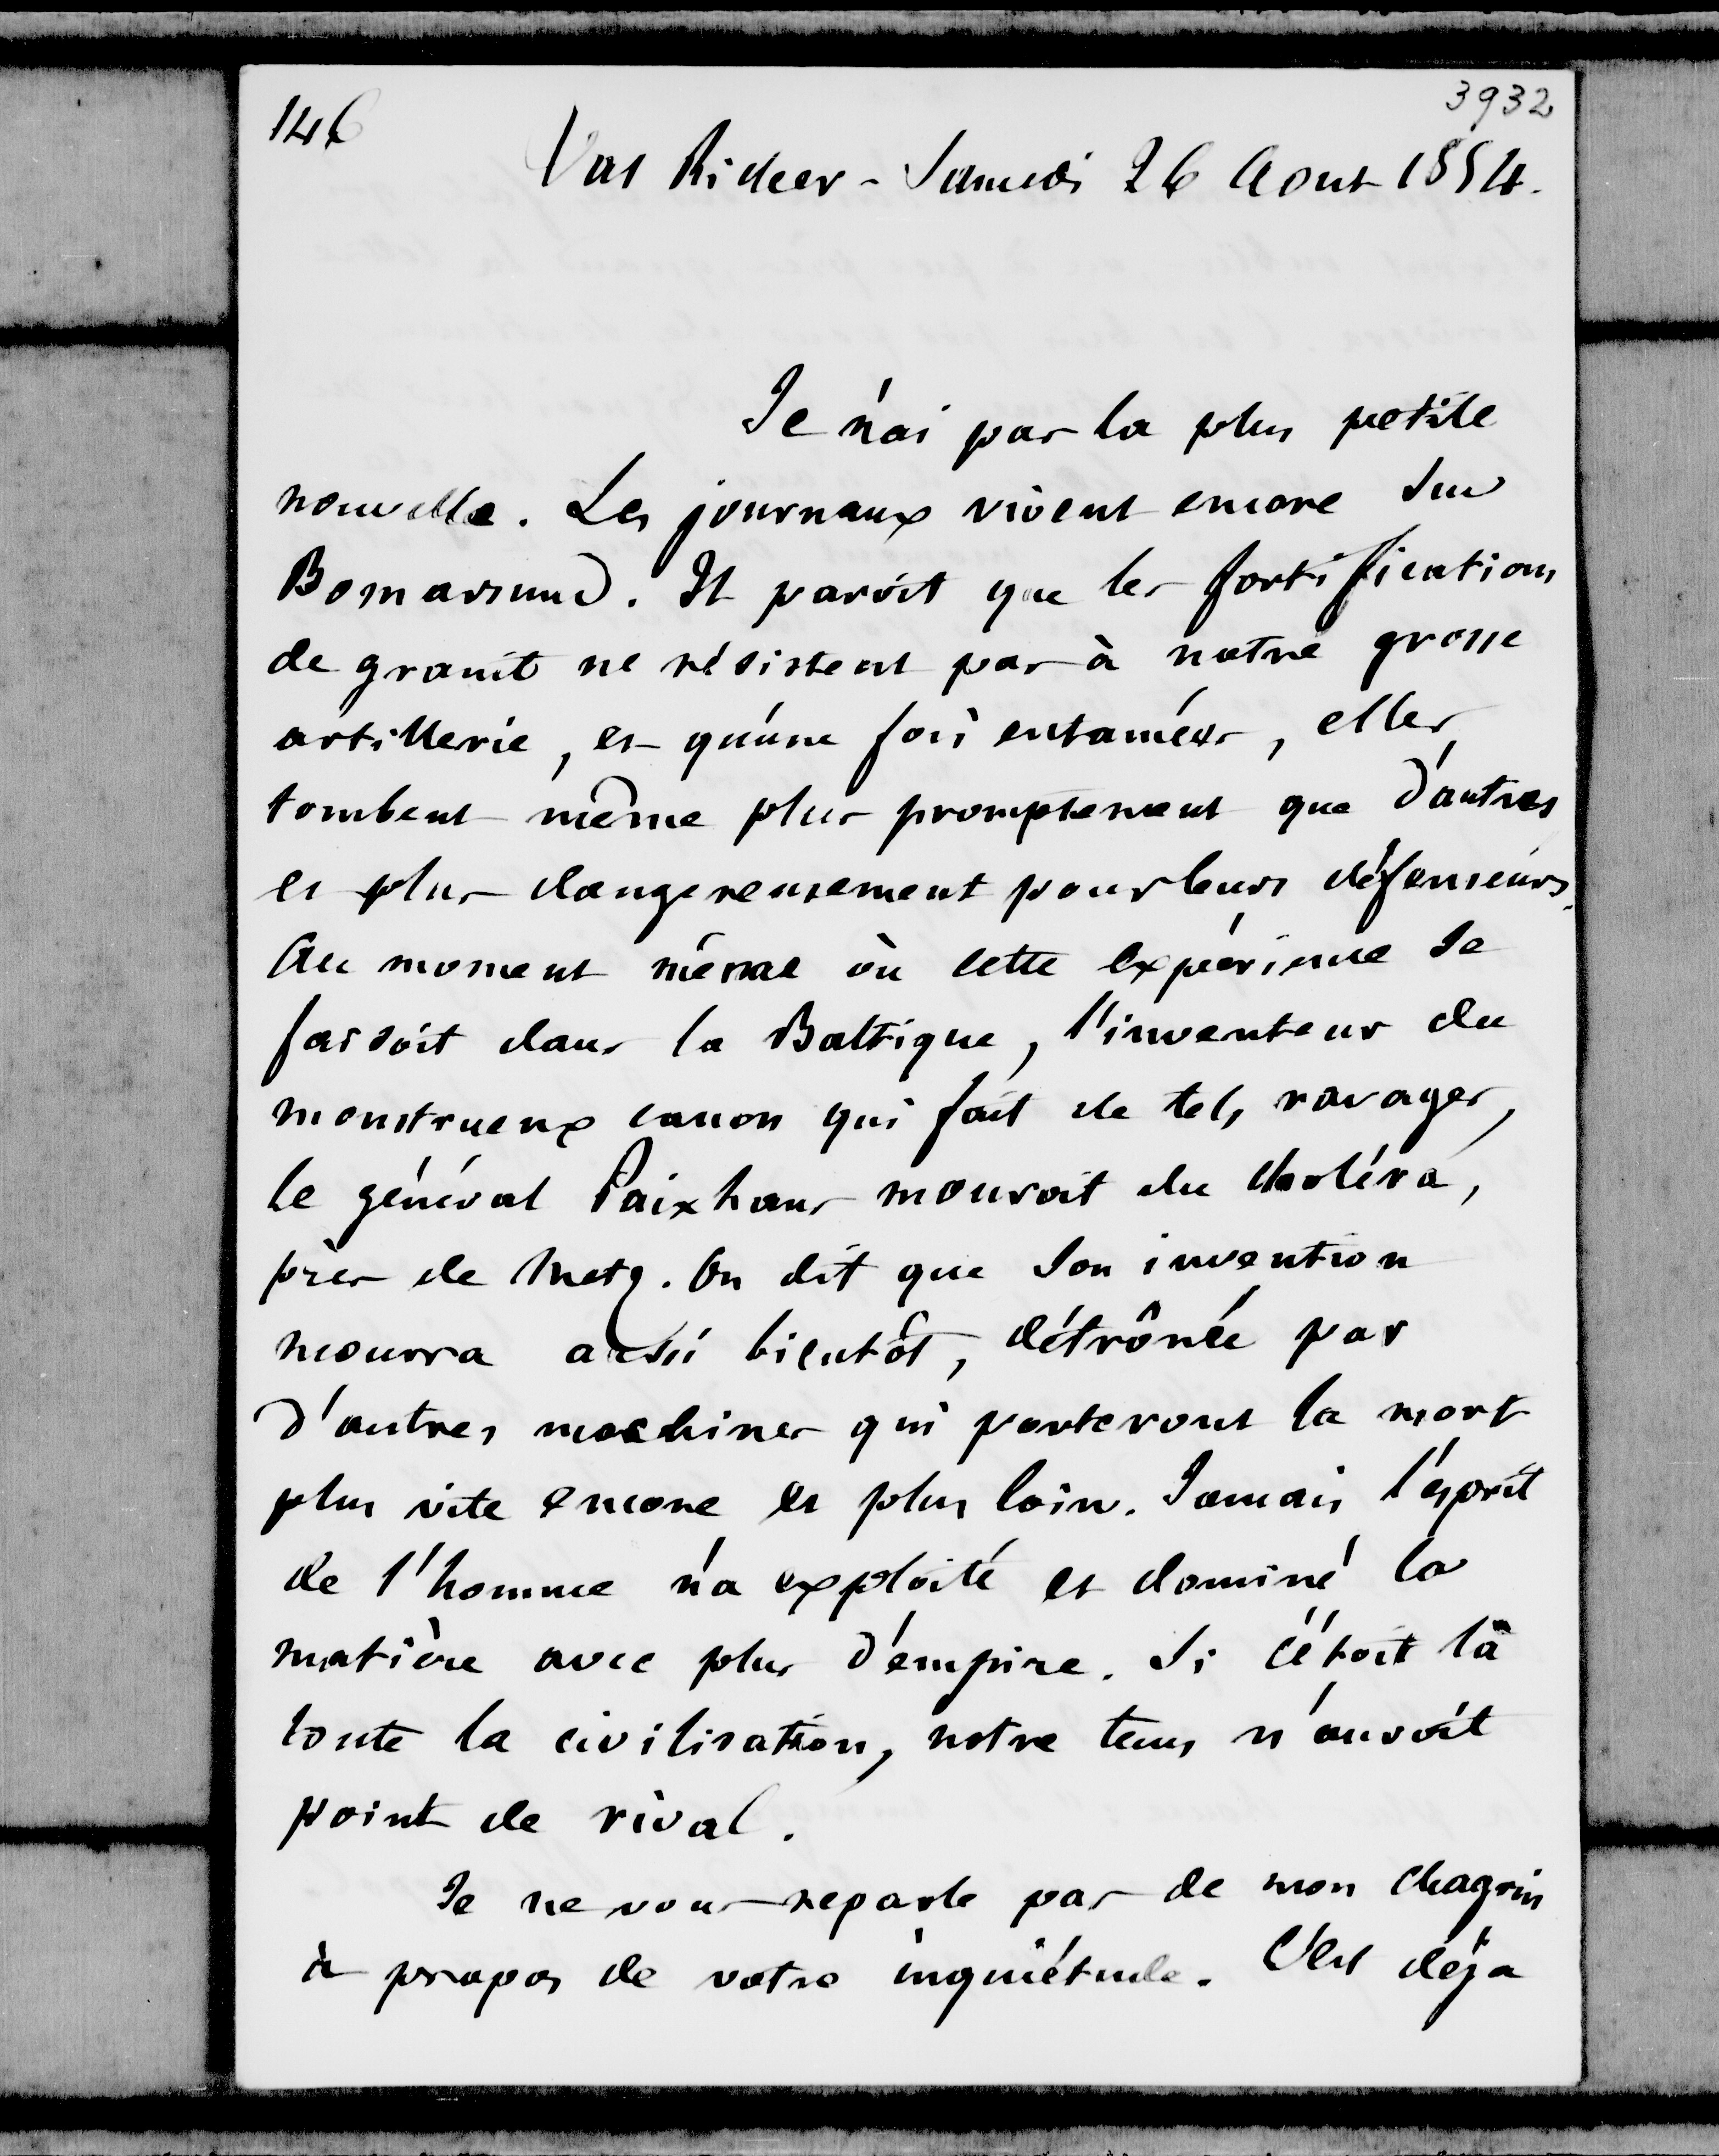 146
3932
Val Richer - Samedi 26 Aout 1854.
Je n'ai pas la plus petite
nouvelle. Les journaux vivent encore sur
Bomarsund. Il paroit que les fortifications
de granit ne résistent pas à notre grosse
artillerie, et qu'une fois entamées, elles
tombent même plus promptement que d'autres
et plus dangereusement pour leurs défenseurs.
Au moment même où cette expérience se
faisoit dans la Baltique, l'inventeur du
monstrueux canon qui fait de tels ravages,
le général Paixhans mouroit du choléra,
près de Metz. On dit que son invention
mourra aussi bientôt, détrônée par
d'autres machines qui porteront la mort
plus vite encore et plus loin. Jamais l'esprit
de l'homme n'a exploité et dominé la
matière avec plus d'empire. Si c'étoit là
toute la civilisation, notre tems n'auroit
point de rival.
Je ne vous reparle pas de mon chagrin
à propos de votre inquiétude. C'est déjà